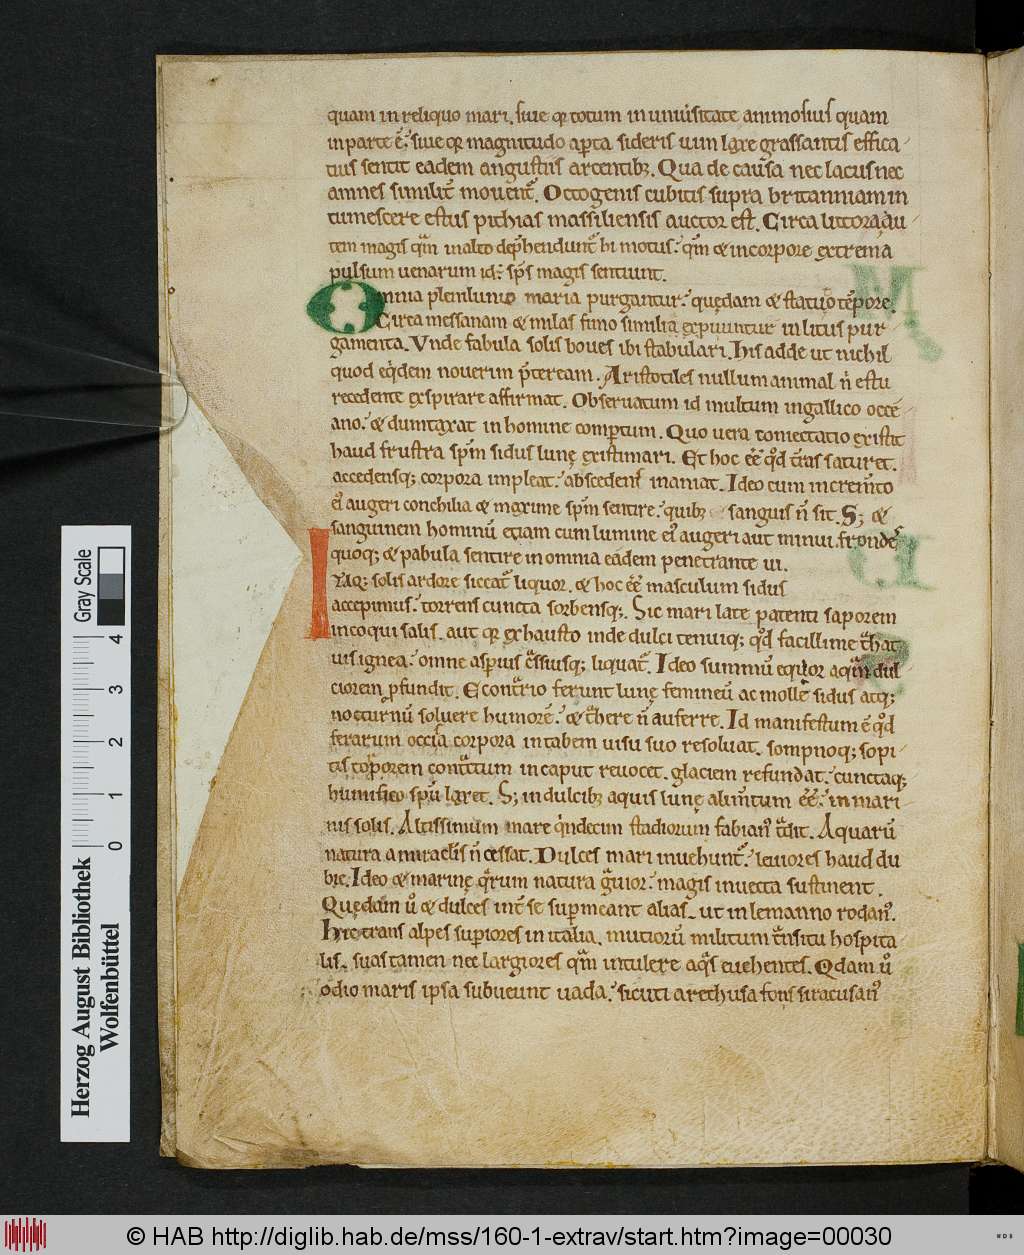 quam in reliquo mari. siue qͥ totum in uniúsitate animosius quam
in parte ē. siue qͥ magnitudo apta sideris uim laxe grassantis effica
tius sentit eadem angustiis arcentibꝫ. Qua de causa nec lacus nec
amnes similit̄ mouent᷑. Octogenis cubitis supra britanniam in
tumescere estus pithias massiliensis auctor est. Circa littora au
tem magis qͣm in alto dep̄hendunt᷑ hi motus. qͫ & in corpore extrema
pulsum uenarum id÷ sp̄s magis sentiunt.
Omnia plenilunio maria purgantur. quędam & statuo tēpore.
Circa messanam & milas fimo similia expuuntur in litus pur
gamenta. Vnde fabula solis boues ibi stabulari. His adde ut nichil
quod eq̇dem nouerim p̄teream. Aristotiles nullum animal n̄ estu
recedente exspirare affirmat. Obseruatum id multum in gallico occe
ano. & dumtaxat in homine compertum. Quo uera coniectatio existit
haud frustra spm̄ sidus lunę existimari. Et hoc eē qd̄ tr̄as saturet.
accedensqꝫ corpora impleat. abscedens inaniat. Ideo cum increm̄to
ei᷒ augeri conchilia & maxime spm̄ sentire. quibꝫ sanguis n̄ sit. Sꝫ &
sanguinem hominū etiam cum lumine ei᷒ augeri aut minui. frondes
quoqꝫ & pabula sentire in omnia eadem penetrante ui.
Itaqꝫ solis ardore siccat᷑ liquor. & hoc eē masculum sidus
accepimus. torrens cuncta sorbensqꝫ. Sic mari late patenti saporem
incoqui salis. aut qͥ exhausto inde dulci tenuiqꝫ qd̄ facillime tͣhat
uis ignea. omne asperius cͣssiusqꝫ liquat᷑. Ideo summū equor aqͣm dul
ciorem ꝓfundit. E contͣrio ferunt lunę femineū ac molle sidus atqꝫ
nocturnū soluere humorē. & tͣhere n̄ auferre. Id manifestum ē qd̄
ferarum occisa corpora in tabem uisu suo resoluat. sompnoqꝫ sopi
tis torporem contͣctum in caput reuocet. glaciem refundat. cunctaqꝫ
humifico spū laxet. Sꝫ in dulcibꝫ aquis lunę alim̄tum eē. in mari
nis solis. Altissimum mare qͥndecim stadiorum fabian᷒ tͣdit. Aquarū
natura a miraclis n̄ cessat. Dulces mari inuehunt᷑. leuiores haud du
bie. Ideo & marinę qͣrum natura gͣuior. magis inuecta sustinent.
Quędam ů & dulces int̄ se supermeant alias. ut in lemanno rodan᷒.
Hic trans alpes superiores in italia. mutiorū militum tͣnsitu hospita
lis. suas tamen nec largiores qͣm intulere aqͣs euehentes. Qdam ů
odio maris ipsa subueunt uada. sicuti arethusa fons siracusan᷒
Gray Scale
0 1 2 3 4
Herzog August Bibliothek
Wolfenbüttel
© HAB http://diglib.hab.de/mss/160-1-extrav/start.htm?image=00030